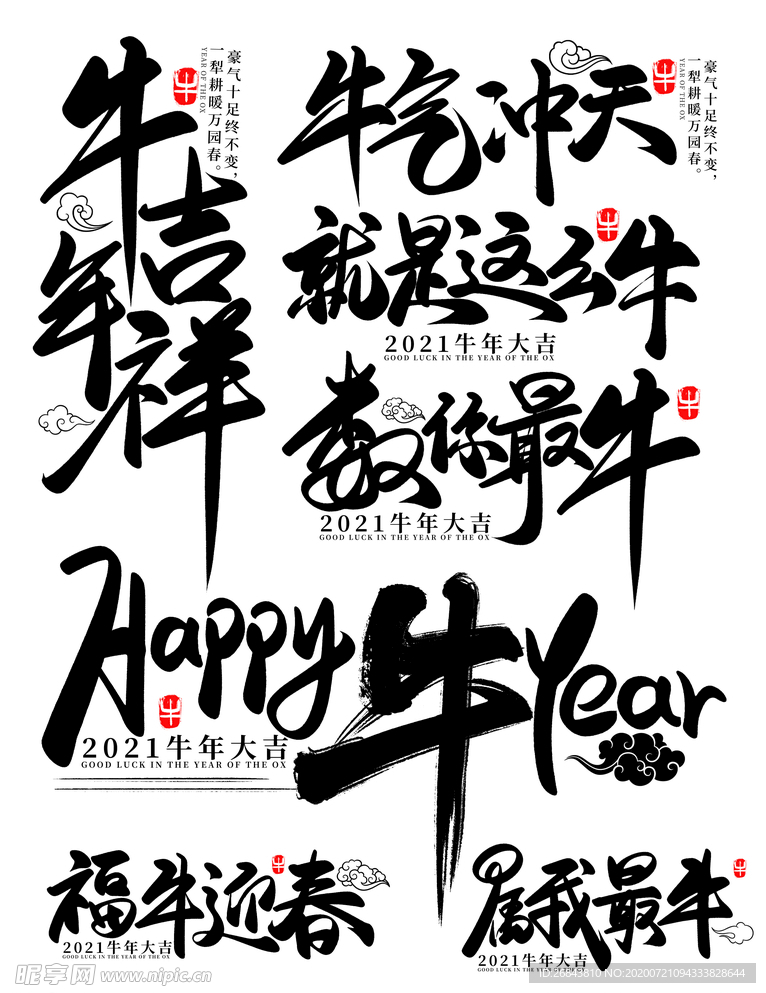 牛年吉祥
牛
豪气十足终不变，
一犁耕暖万园春。
YEAR OF THE OX
牛气冲天
牛
豪气十足终不变，
一犁耕暖万园春。
YEAR OF THE OX
就是这么牛
牛
2021牛年大吉
GOOD LUCK IN THE YEAR OF THE OX
数你最牛
牛
2021牛年大吉
GOOD LUCK IN THE YEAR OF THE OX
Happy牛Year
牛
2021牛年大吉
GOOD LUCK IN THE YEAR OF THE OX
福牛迎春
牛
2021牛年大吉
GOOD LUCK IN THE YEAR OF THE OX
属我最牛
牛
2021牛年大吉
GOOD LUCK IN THE YEAR OF THE OX
昵享网 www.nipic.cn
ID:26843810 NO:20200721094333828644